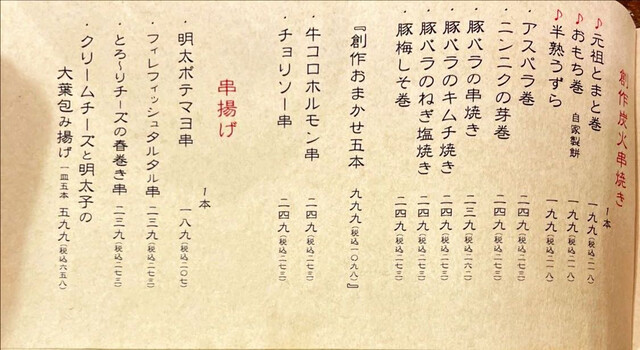 創作炭火串焼き
1本
♪元祖とまと巻 一九九(税込二一八)
♪おもち巻 自家製餅 一九九(税込二一八)
♪半熟うずら 一九九(税込二一八)
・アスパラ巻 二四九(税込二七三)
・ニンニクの芽巻 二四九(税込二七三)
・豚バラの串焼き 二三九(税込二六二)
・豚バラのキムチ焼き 二四九(税込二七三)
・豚バラのねぎ塩焼き 二四九(税込二七三)
・豚梅しそ巻 二四九(税込二七三)
『創作おまかせ五本 九九九(税込一〇九八)』
・牛コロホルモン串 二四九(税込二七三)
・チョリソー串 二四九(税込二七三)
串揚げ
1本
・明太ポテマヨ串 一八九(税込二〇七)
・フィレフィッシュタルタル串 二三九(税込二七三)
・とろ〜りチーズの春巻き串 二三九(税込二七三)
・クリームチーズと明太子の
大葉包み揚げ 一皿五本 五九九(税込六五八)